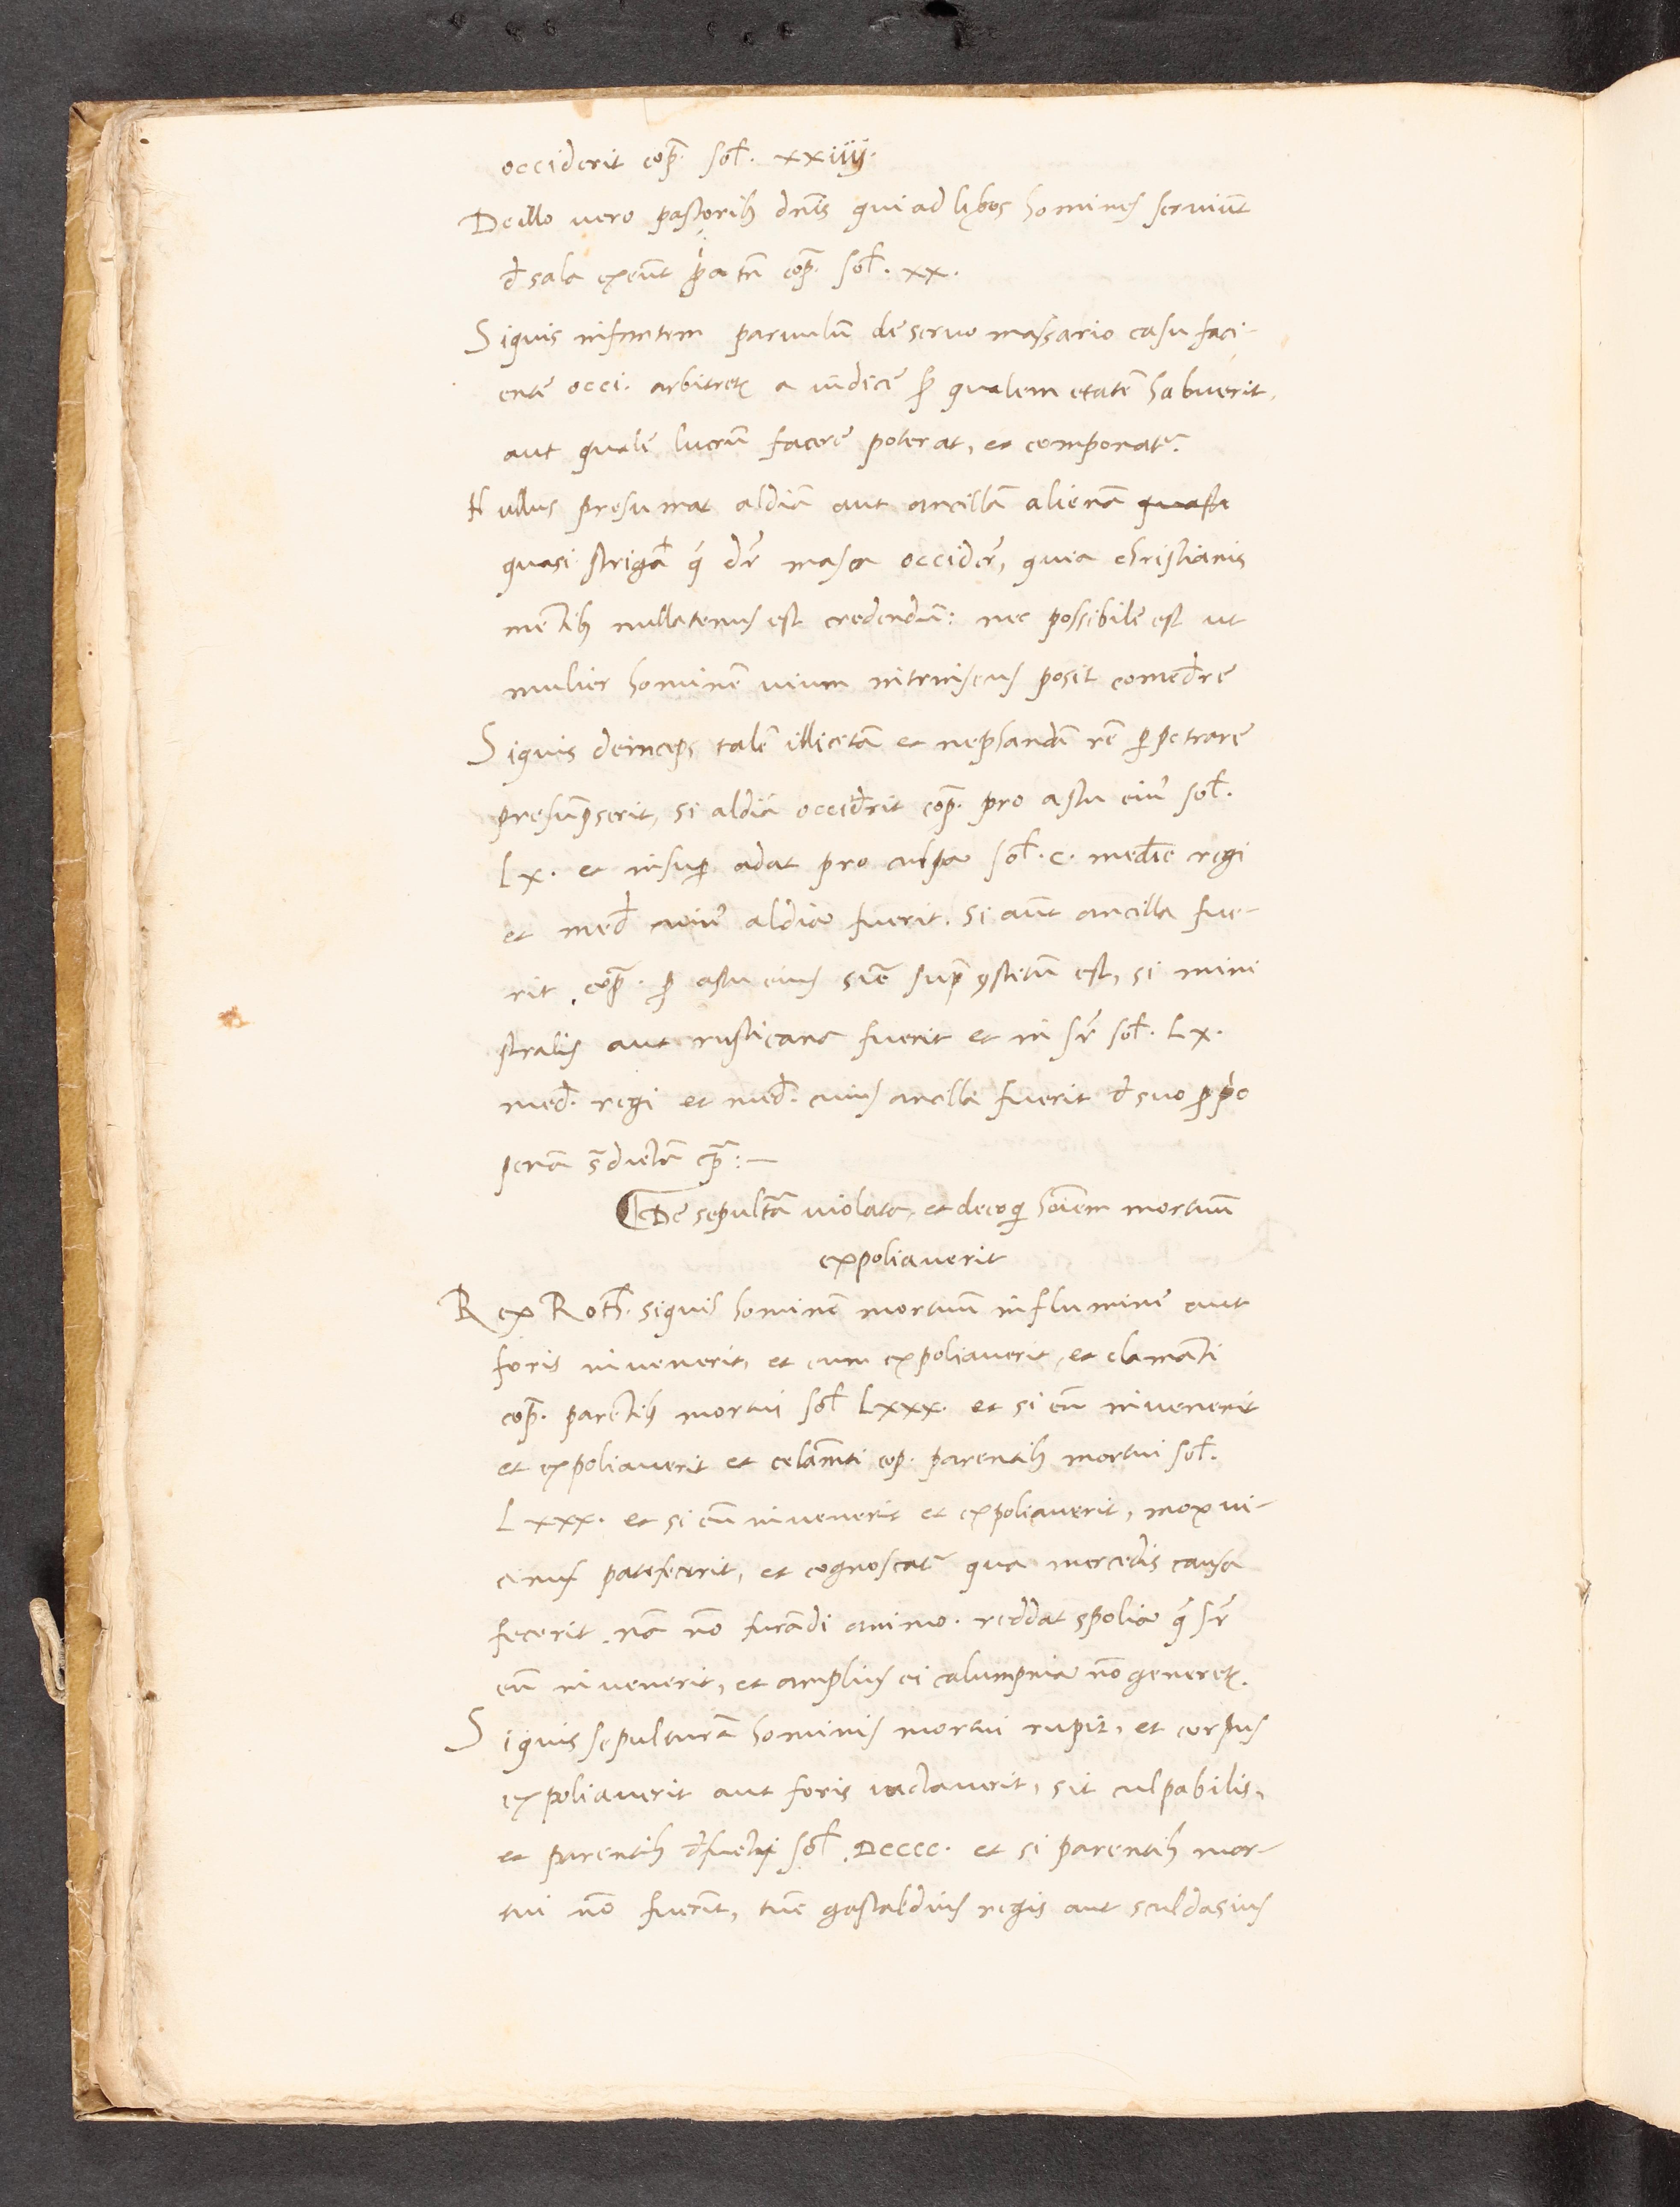 occiderit cōp̄. sol̄. xxiiij.
De illo vero pastorib; dn̄is qui ad lib̄os homines serviūt
d̄ sala exeūt p̄ ā tn̄ cōp̄. sol̄. xx.
Siquis infantem parvulū de servo massario casu faci-
entē occi. arbitret̄ a iudicē p̄ qualem etatē habuerit,
aut qualē lucrū facere poterat, et componat̄.
Nullus presumat aldiā aut ancillā alienā quasi
quasi strigā q̄ dr̄ masca occider̄, quia christianis
mētib; nullatenus est credendū: nec possibile est ut
mulier hominē vivum intrinsecus posit comedr̄e
Siquis deinceps talē illicitā et nephandā rē ꝑpetrare
presūpserit, si aldiā occidr̄it cōp̄. pro astu eiuˀ sol̄.
Lx. et insuꝑ adat pro culpa sol̄. c. medie regi
et med̄ cuiuˀ aldia fuerit. Si aūt ancilla fue-
rit, cōp̄. ꝓ astu eius sicut sup̄ ꝯstitutū est, si mini
stralis aut rusticana fuerit et in sr̄ sol̄. Lx.
med̄. regi et med̄. cuius ancilla fuerit d̄ suo ꝓp̄o
penā s̄dictā cp̄:—
De sepultr̄a violata, et de eo qi hoīem mortuū
expoliaverit
Rex Roth̄. siquis hominē mortuū in flumine aut
foris invenerit, et eum expoliaverit, et clamāti
cōp̄. parētib; mortui sol̄ Lxxx. et si eū invenerit
et expoliaverit et celām̄ti cōp. parentib; mortui sol̄.
Lxxx. et si eū invenerit et expoliaverit, mox vi-
cinus patefecerit, et cognoscat̄ qua mercedis causa
fecerit, nā nō furādi animo. reddat spolia q̄ sr̄
eū invenerit, et amplius ei calumpnia nō generet̄.
Siquis sepulturā hominis mortui rupit, et corpus
expoliaverit aut foris iactaverit, sit culpabilis,
et parentib; d̄fūcti sol̄. Dcccc. et si parentib; mor-
tui nō fuerīt, tūc gastaldius regis aut sculdasius